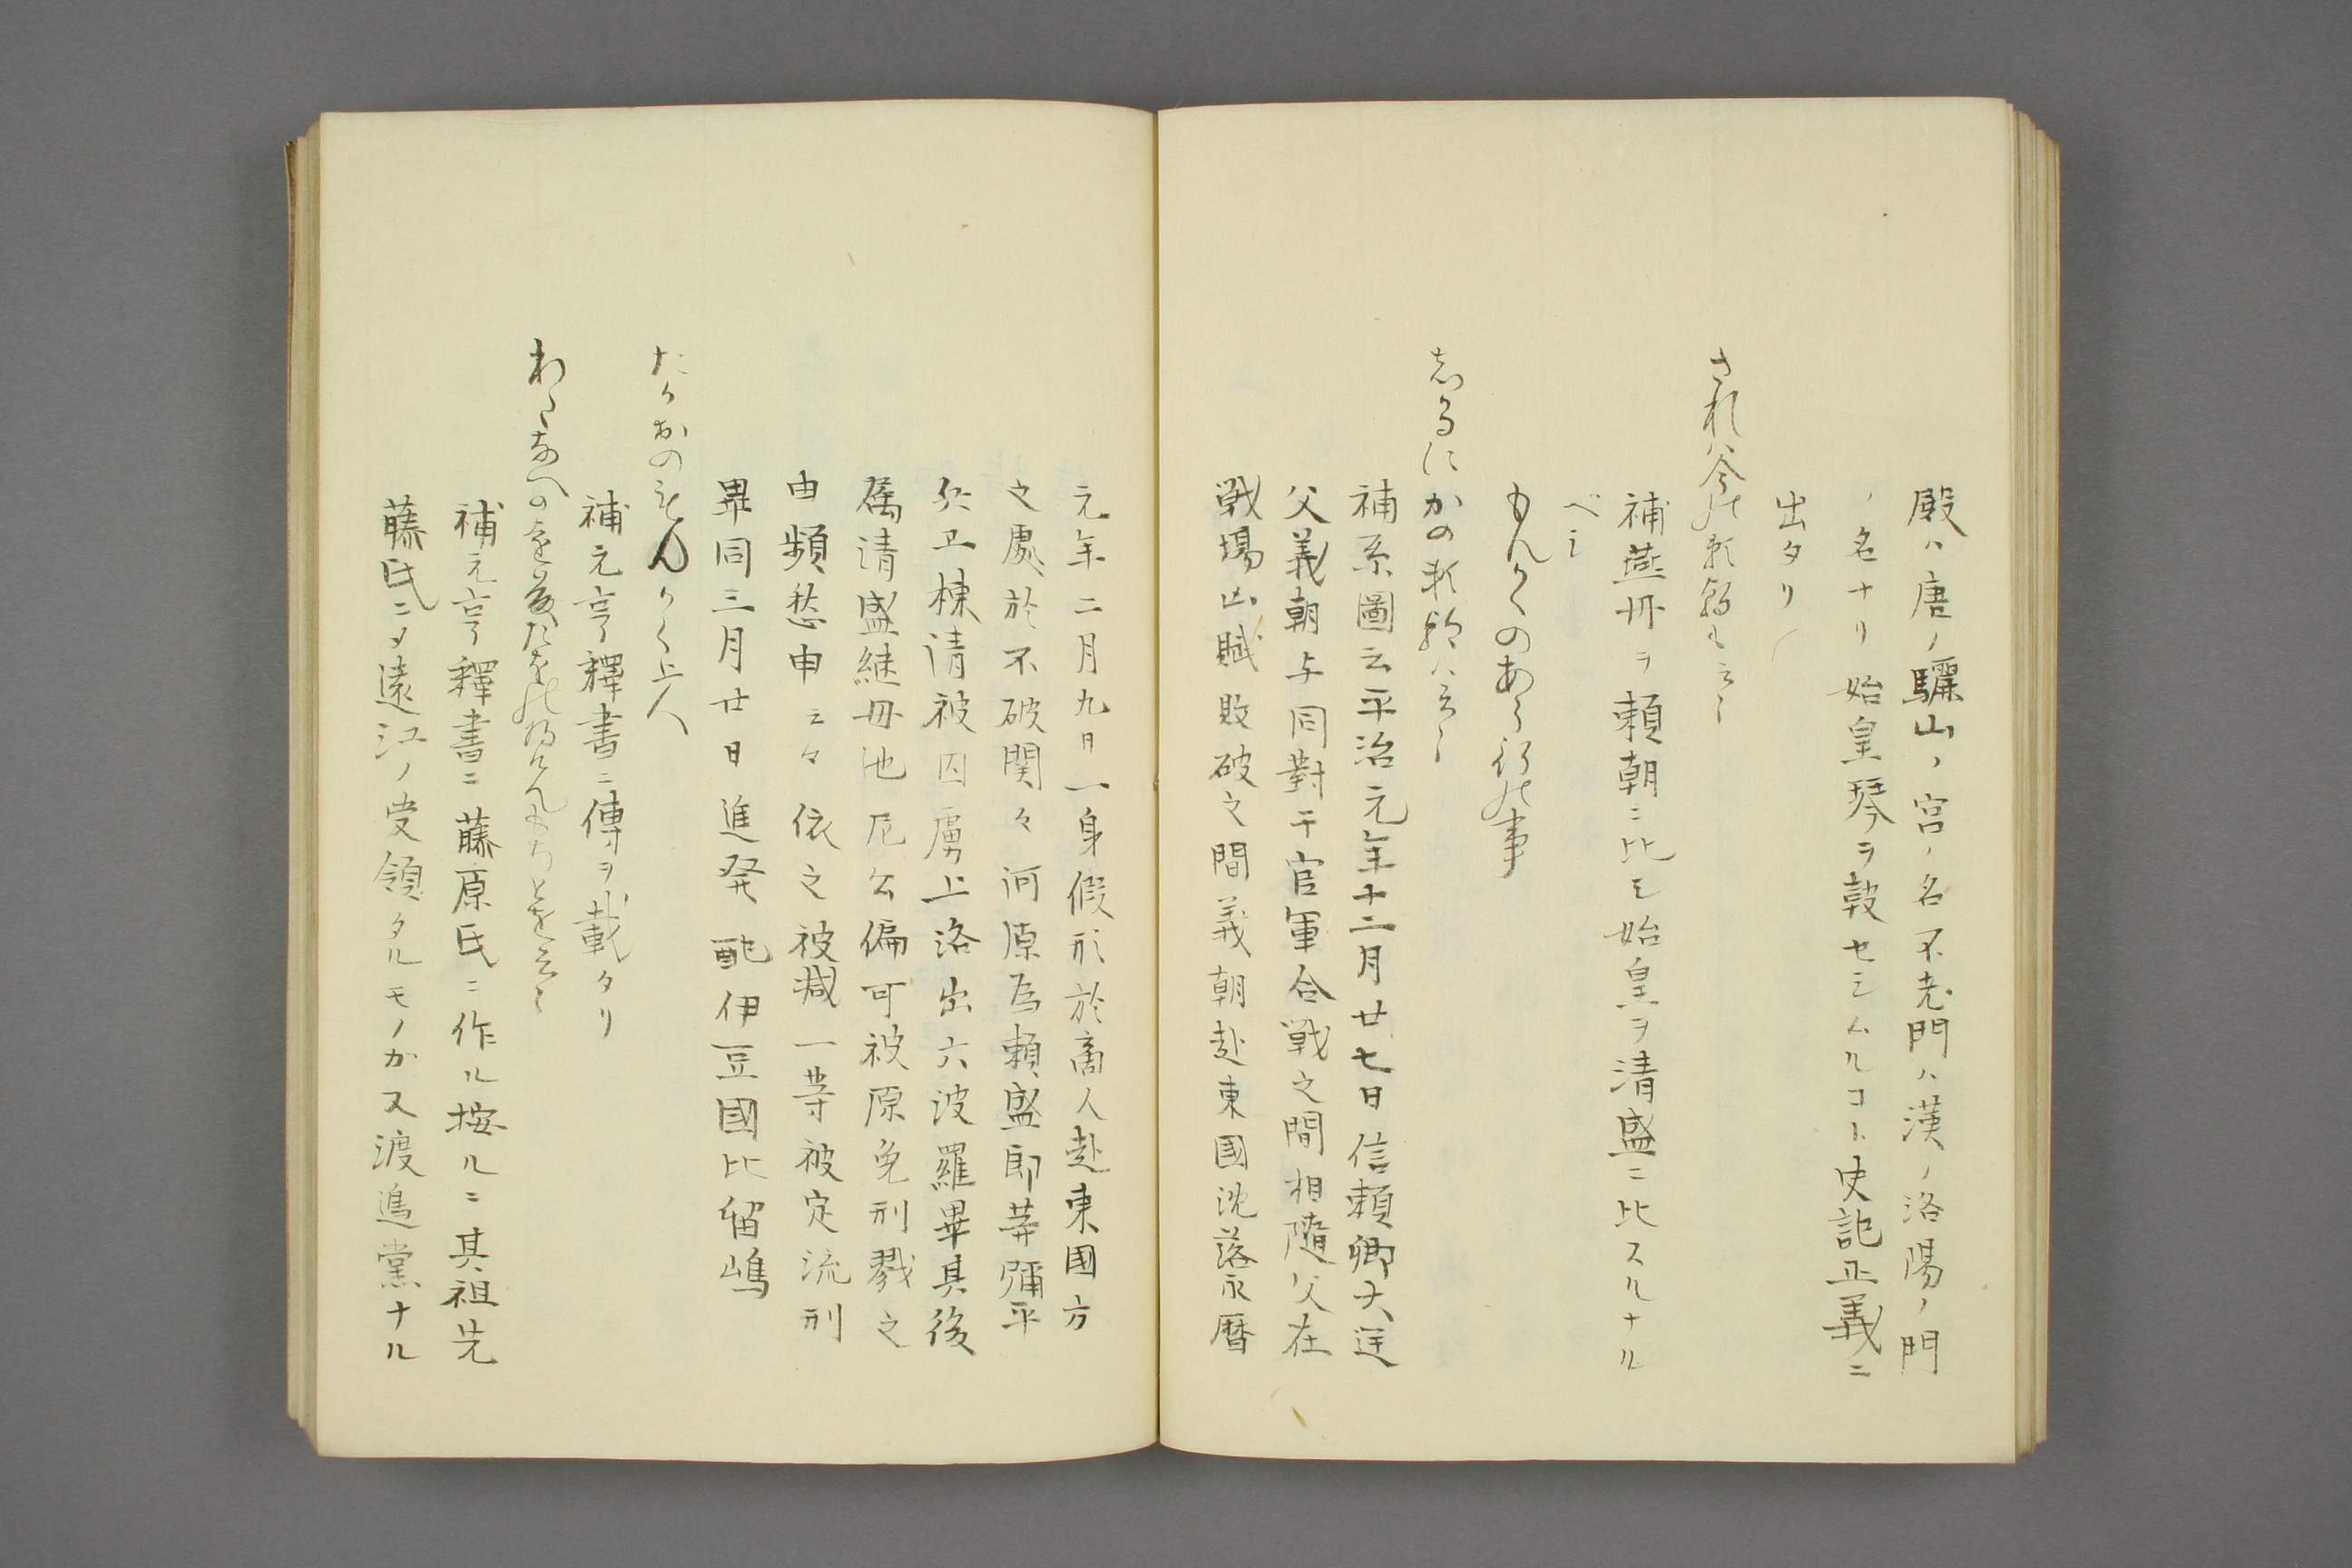 殿ハ唐ノ驪山ノ宮ノ名不老門ハ漢ノ洛陽ノ門
ノ名ナリ始皇琴ヲ鼓セシムルコト史記正義ニ
出タリ
されハ今の頼朝も云〻
補燕丹ヲ頼朝ニ比シ始皇ヲ清盛ニ比スルナル
ベシ
もんかくのあら行の事
志かるにかの頼朝ハ云〻
補系圖云平治元年十二月廿七日信頼卿大逆
父義朝与同對于官軍合戦之間相隨父在
戦場凶賊敗破之間義朝赴東國沈落永暦
元年二月九日一身假形於商人赴東國方
之處於不破関々河原為頼盛郎莘彌平
兵卫棟清被囚虜上洛出六波羅畢其後
属清盛継母池尼公偏可被原免刑戮之
由頻愁申云々依之被减一等被定流刑
畢同三月廿日進発配伊豆國比留嶋
たかおのもんかく上人
補元亨釋書ニ傳ヲ載タリ
わたなへの
補元亨釋書ニ藤原氏ニ作ル按ルニ其祖先
藤氏ニメ遠江ノ受領タルモノか又渡邉黨ナル